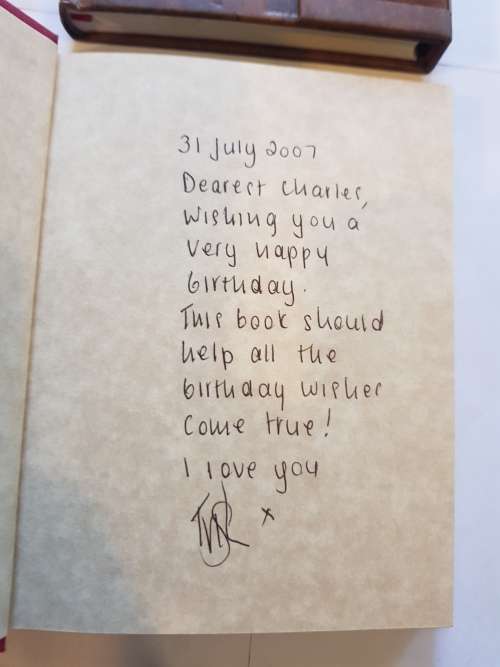 31 July 2007
Dearest Charles,
Wishing you a
very happy
birthday.
This book should
help all the
birthday wishes
come true!
I love you
x